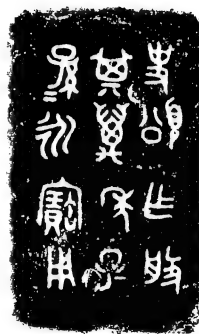 史頌乍般
其萬年子=
孫=永寶用